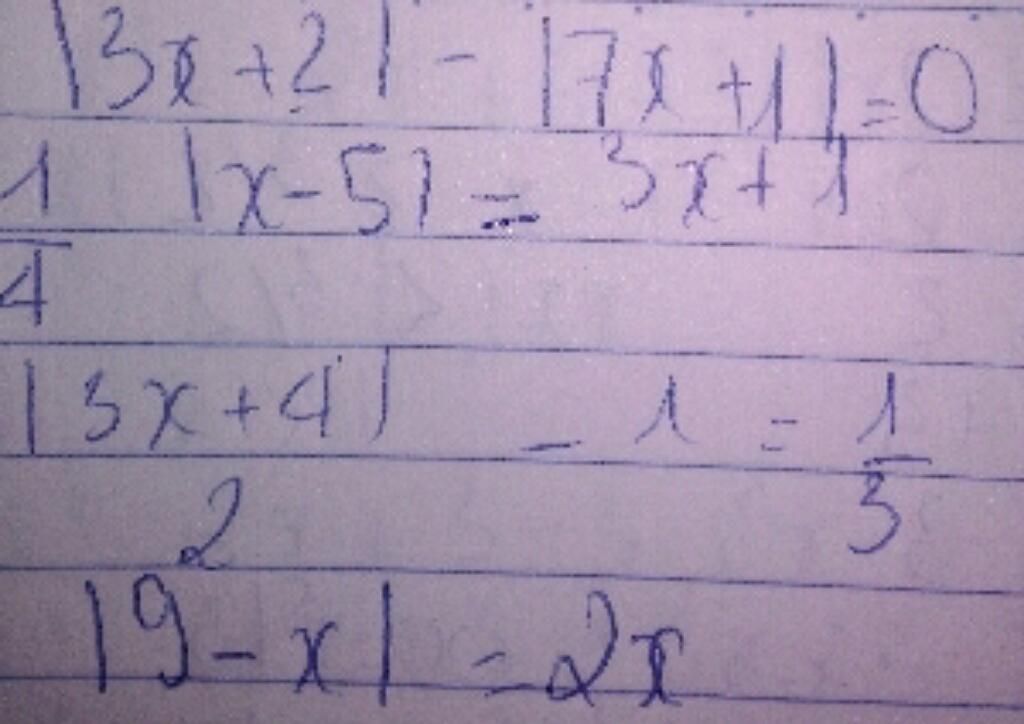 |3x+2| - |7x+1| = 0
1/4 |x-5| = 3x+1
|3x+4|/2 - 1 = 1/3
|9-x| = 2x